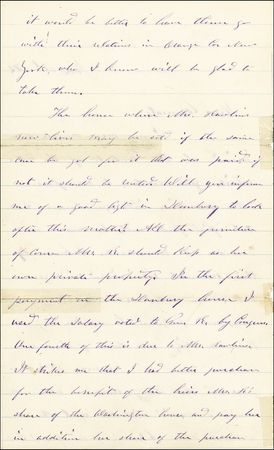 it would be better to have them go
with their relations in Orange Co New
York, who I know will be glad to
take them.
The house where Mrs. Rawlins
now lives may be sold if the same
can be got for it that was paid; if
not it should be rented. Will you inform
me of a good agt in Danbury to look
after this matter. All the furniture
of course Mrs. R. should keep as her
own private property. In the first
payment on the Danbury house I
used the salary voted to Gen. R. by Congress,
One fourth of this is due to Mrs. Rawlins.
It strikes me that I had better purchase
for the benefit of the heirs Mrs. R's
share of the Washington house and pay her
in addition her share of the purchase